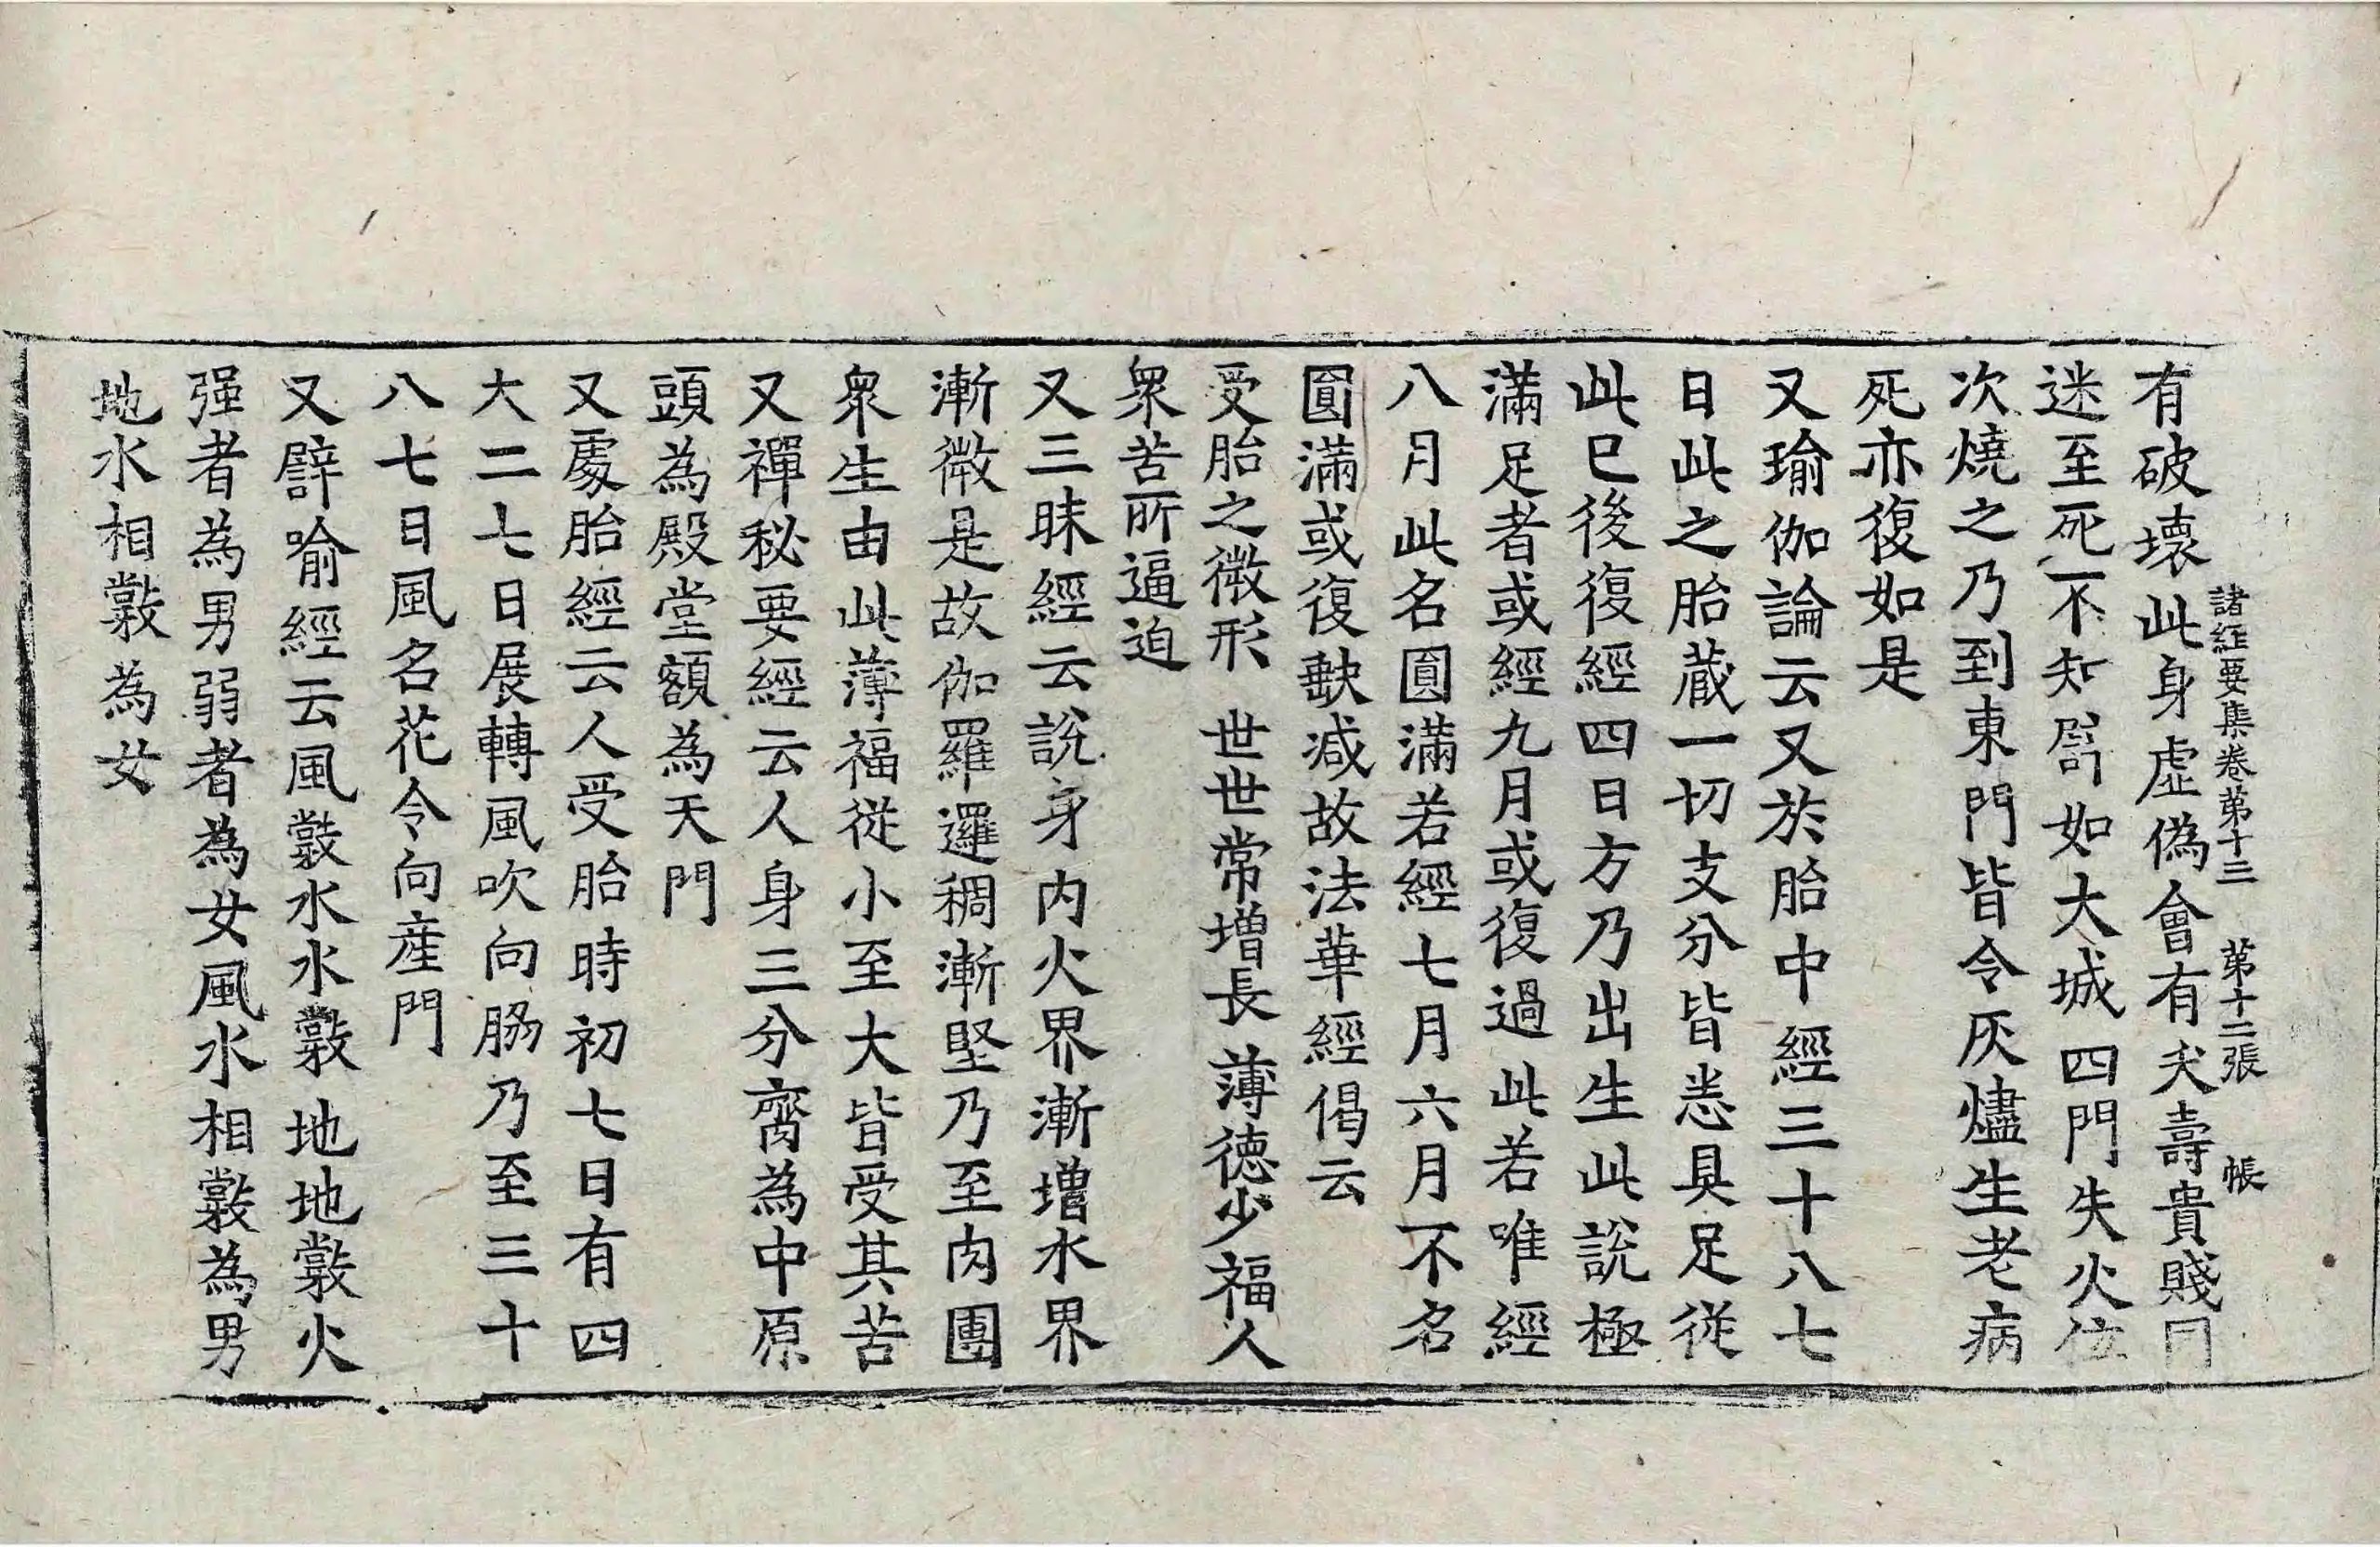 諸經要集卷苐十三　苐十二張　帳
有破壞此身虛僞會有夭壽貴賤同
迷至死不知譬如大城四門失火從
次燒之乃到東門皆令灰燼生老病
死亦復如是
又瑜伽論云又於胎中經三十八七
日此之胎藏一切支分皆悉具足從
此已後復經四日方乃出生此說極
滿足者或經九月或復過此若唯經
八月此名圓滿若經七月六月不名
圓滿或復缺减故法華經偈云
受胎之微形　世世常增長　薄德少福人
衆苦所逼迫
又三昧經云說身內火界漸增水界
漸微是故伽羅邏稠漸堅乃至肉團
衆生由此薄福從小至大皆受其苦
又禪秘要經云人身三分齊為中原
頭為殿堂額為天門
又處胎經云人受胎時初七日有四
大二七日展轉風吹向脇乃至三十
八七日風名花令向産門
又譬喻經云風𣫍水水𣫍地地𣫍火
强者為男弱者為女風水相𣫍為男
地水相𣫍為女